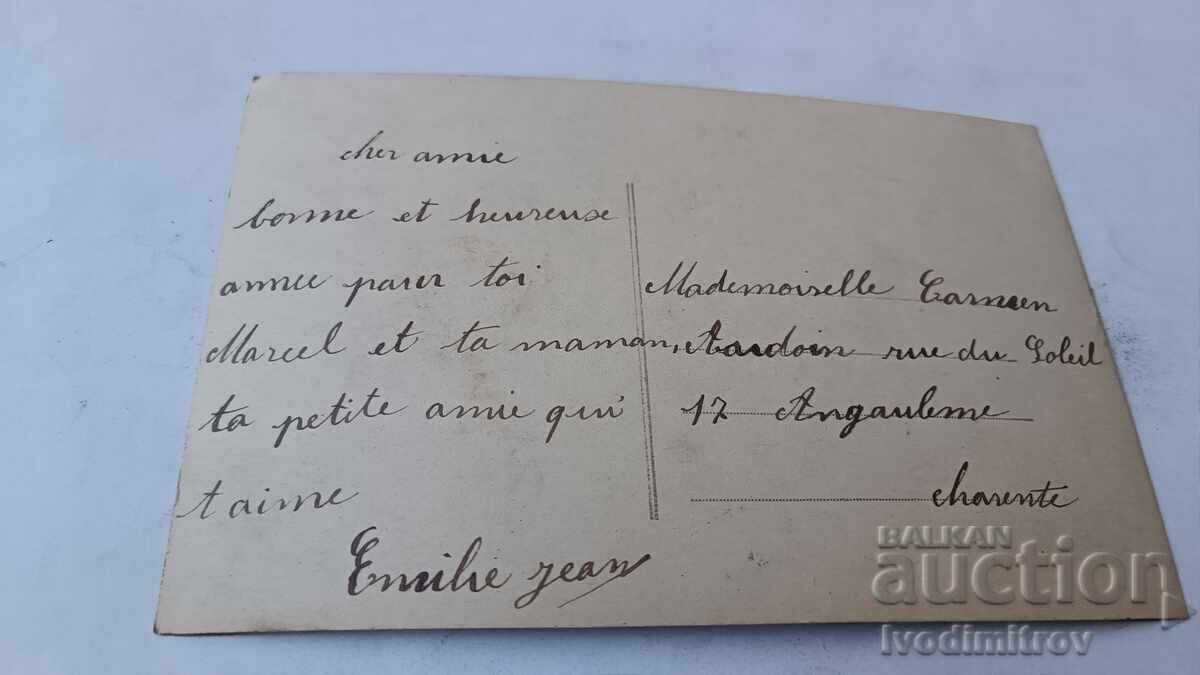 cher amie
bonne et heureuse
annee pour toi
Marcel et ta maman,
ta petite amie qui
t aime
Emilie jean
Mademoiselle Carmen
Aardoin rue du Soleil
17 Angouleme
charente
BALKAN
auction
Ivodimitrov